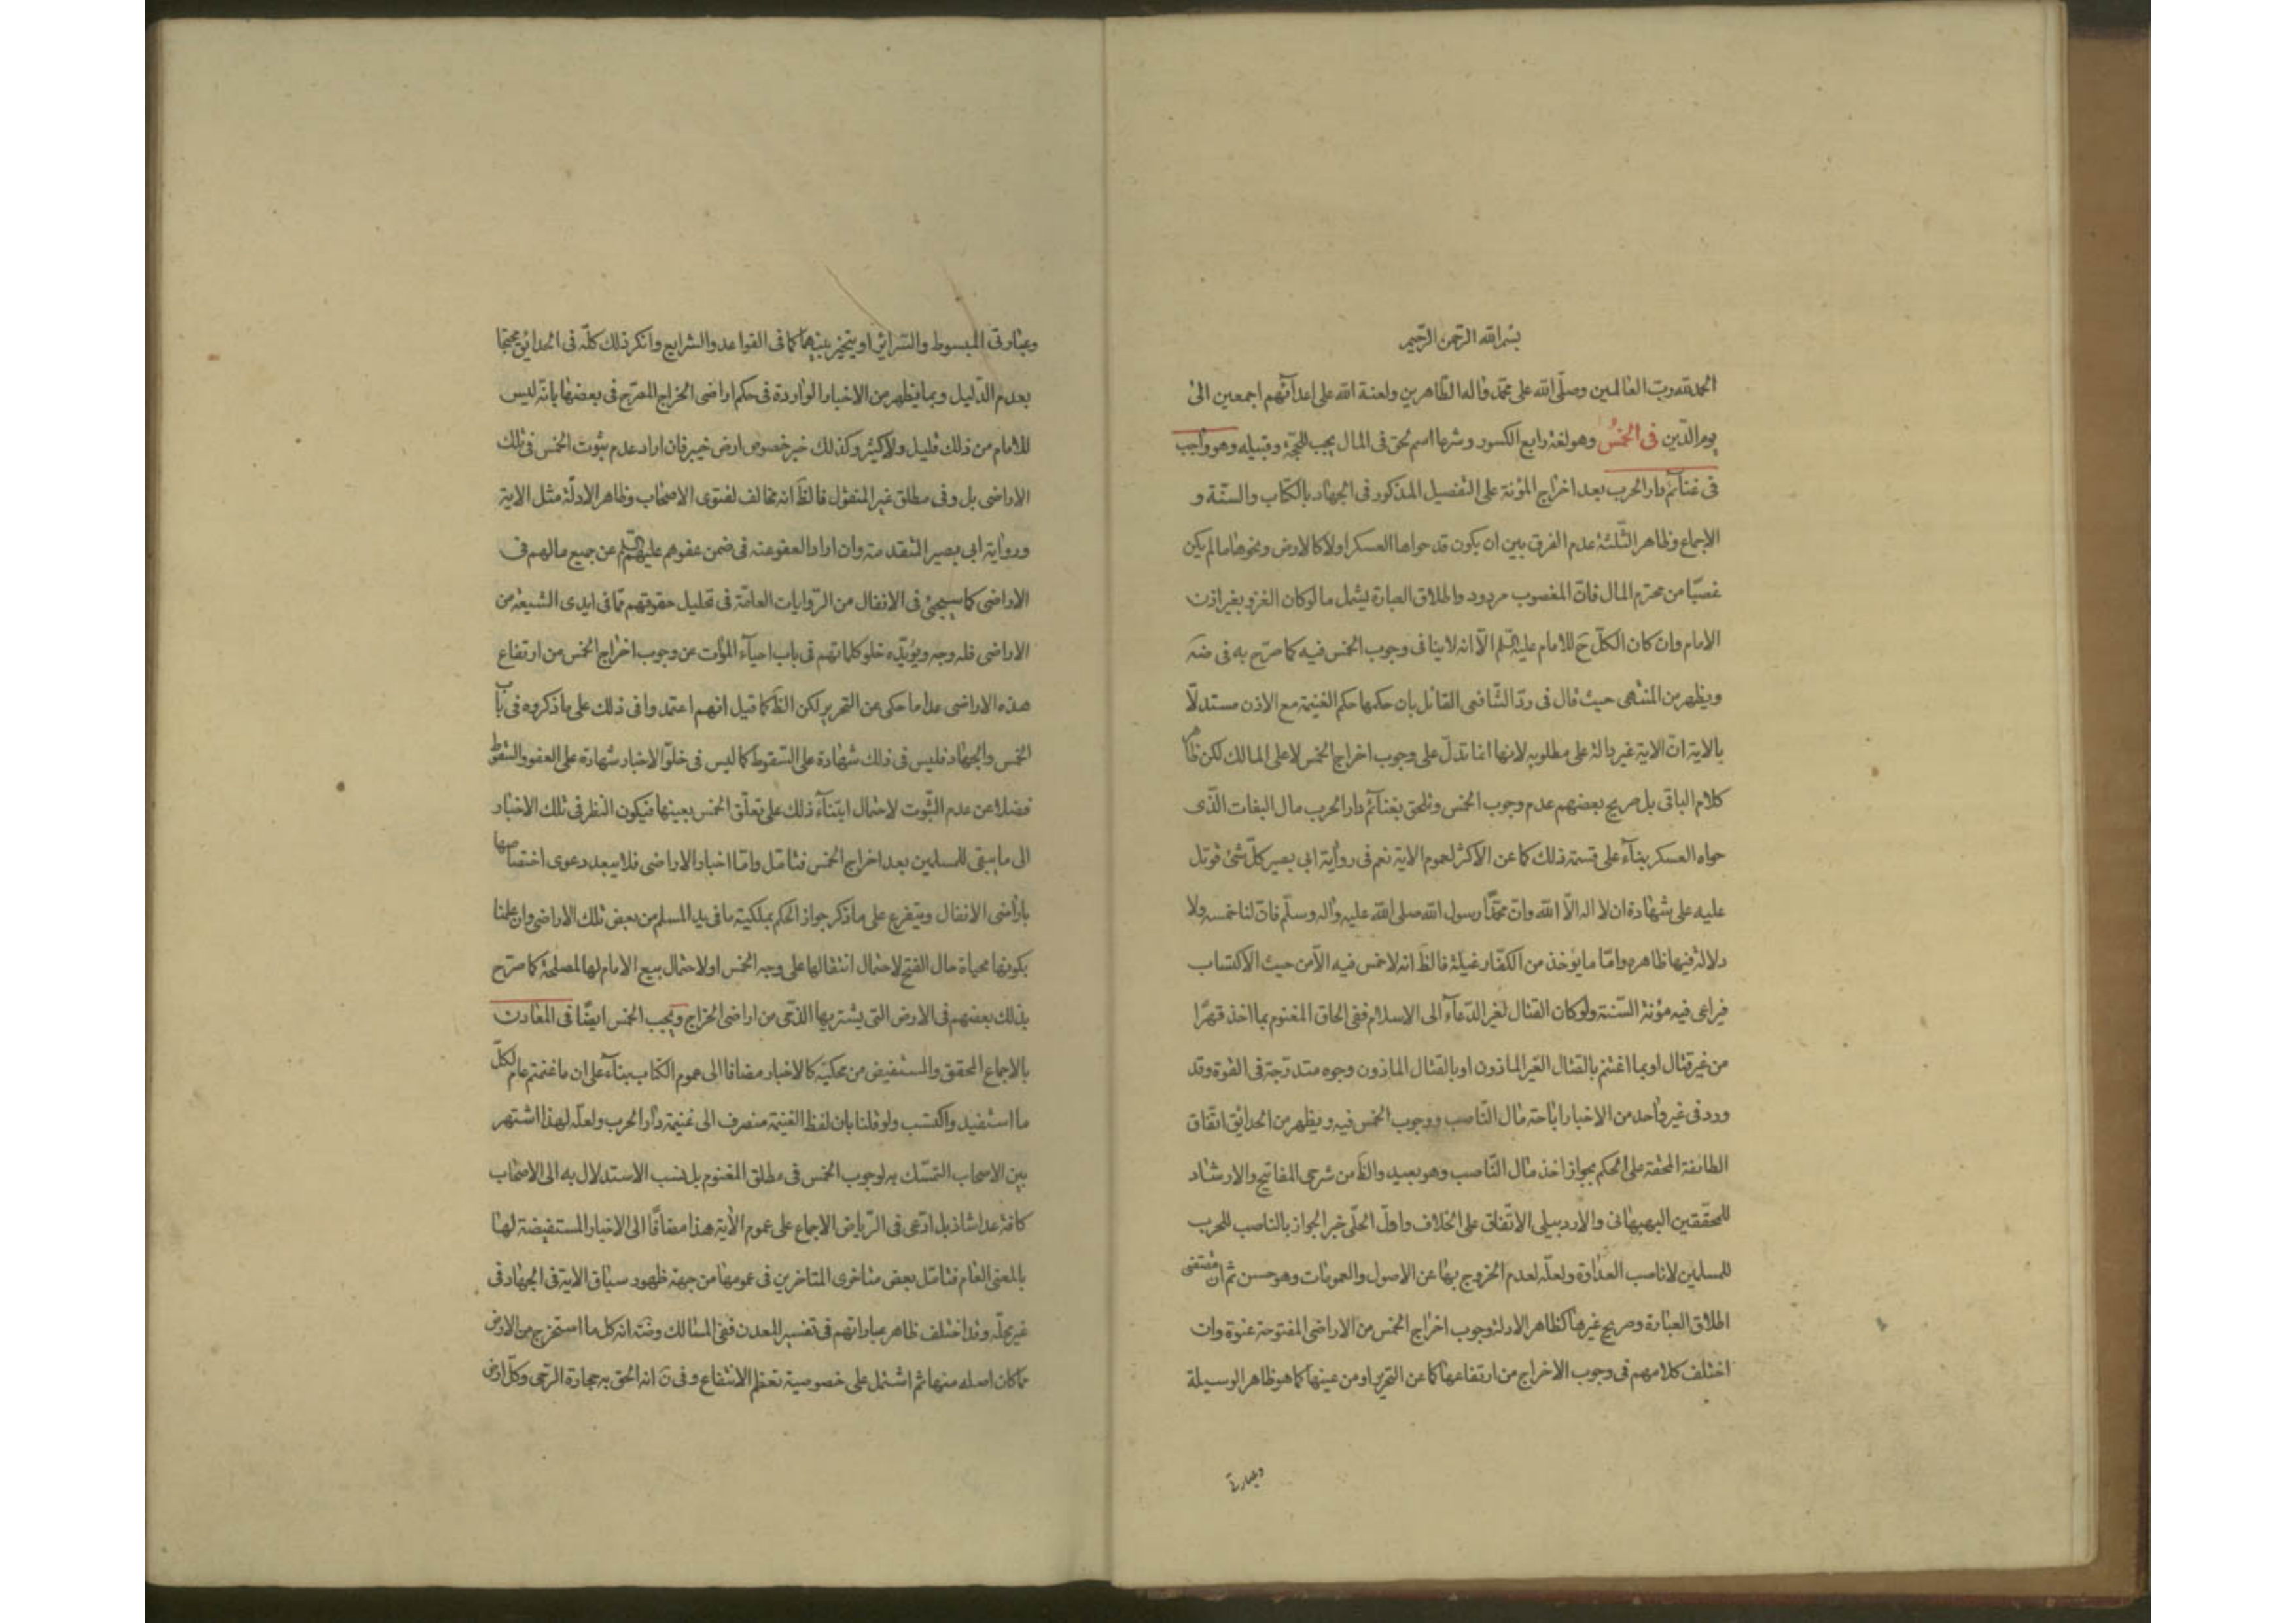 بسم الله الرحمن الرحيم
الحمد لله رب العالمين وصلى الله على محمد واله الطاهرين ولعنة الله على اعدائهم اجمعين الى
يوم الدين فى الخمس وهو لغة رابع الكسور وشرعا اسم لحق فى المال يجب للحجة وقبيله وهو واجب
فى غنائم دار الحرب بعد اخراج المؤنة على التفصيل المذكور فى الجهاد بالكتاب والسنة و
الاجماع وظاهر الثلثة عدم الفرق بين ان يكون قد حواها العسكر اولا كالارض ونحوها ما لم يكن
غصبا من محترم المال فان المغصوب مردود واطلاق العبارة يشمل ما لو كان الغزو بغير اذن
الامام وان كان الكل ح للامام عليه السلم الا انه لا ينافى وجوب الخمس فيه كما صرح به فى ضه
ويظهر من المنتهى حيث قال فى رد الشافعى القائل بان حكمها حكم الغنيمة مع الاذن مستدلا
بالاية ان الاية غير دالة على مطلوبه لانها انما تدل على وجوب اخراج الخمس لا على المالك لكن ظاهر
كلام الباقى بل صريح بعضهم عدم وجوب الخمس ويلحق بغنائم دار الحرب مال البغات الذى
حواه العسكر بناء على قسمة ذلك كما عن الاكثر لعموم الاية نعم فى رواية ابى بصير كل شئ قوتل
عليه على شهادة ان لا اله الا الله وان محمدا رسول الله صلى الله عليه واله وسلم فان لنا خمسه ولا
دلالة فيها ظاهره واما ما يؤخذ من الكفار غيلة فالظ انه لا خمس فيه الا من حيث الاكتساب
فيراعى فيه مؤنة السنة ولو كان القتال لغير الدعاء الى الاسلام ففى الحاق المغنوم بما اخذ قهرا
من غير قتال او بما اغتنم بالقتال الغير الماذون او بالقتال الماذون وجوه متدرجة فى القوة وقد
ورد فى غير واحد من الاخبار اباحة مال الناصب ووجوب الخمس فيه ويظهر من الحدائق اتفاق
الطائفة المحقة على الحكم بجواز اخذ مال الناصب وهو بعيد والظ من شرحى المفاتيح والارشاد
للمحققين البهبهانى والاردبيلى الاتفاق على الخلاف واول الحلى خبر الجواز بالناصب للحرب
للمسلمين لا ناصب العداوة ولعله لعدم الخروج بها عن الاصول والعمومات وهو حسن ثم ان مقتضى
اطلاق العبارة وصريح غيرها كظاهر الادلة وجوب اخراج الخمس من الاراضى المفتوحة عنوة وان
اختلف كلامهم فى وجوب الاخراج من ارتفاعها كما عن التحرير او من عينها كما هو ظاهر الوسيلة
وعبارة
وعبارتى المبسوط والسرائر او يتخير بينهما كما فى القواعد والشرايع وانكر ذلك كله فى الحدائق محتجا
بعدم الدليل وبما يظهر من الاخبار الواردة فى حكم اراضى الخراج المصرح فى بعضها بانه ليس
للامام من ذلك قليل ولا كثير وكذلك خبر خصوص ارض خيبر فان اراد عدم ثبوت الخمس فى تلك
الاراضى بل وفى مطلق غير المنقول فالظ انه مخالف لفتوى الاصحاب وظاهر الادلة مثل الاية
ورواية ابى بصير المتقدمة وان اراد العفو عنه فى ضمن عفوهم عليهم السلم عن جميع مالهم فى
الاراضى كما سيجئ فى الانفال من الروايات العامة فى تحليل حقوقهم مما فى ايدى الشيعة من
الاراضى فله وجه ويؤيده خلو كلماتهم فى باب احياء الموات عن وجوب اخراج الخمس من ارتفاع
هذه الاراضى عدا ما حكى عن التحرير لكن الظ كما قيل انهم اعتمدوا فى ذلك على ما ذكروه فى باب
الخمس والجهاد فليس فى ذلك شهادة على السقوط كما ليس فى خلو الاخبار شهادة على العفو والسقوط
فضلا عن عدم الثبوت لاحتمال ابتناء ذلك على تعلق الخمس بعينها فيكون النظر فى تلك الاخبار
الى ما يبقى للمسلمين بعد اخراج الخمس فتامل واما اخبار الاراضى فلا يبعد دعوى اختصاصها
باراضى الانفال ويتفرع على ما ذكر جواز الحكم بملكية ما فى يد المسلم من بعض تلك الاراضى وان علمنا
بكونها محياة حال الفتح لاحتمال انتقالها على وجه الخمس او لاحتمال بيع الامام لها لمصلحة كما صرح
بذلك بعضهم فى الارض التى يشتريها الذمى من اراضى الخراج ويجب الخمس ايضا فى المعادن
بالاجماع المحقق والمستفيض من محكيه كالاخبار مضافا الى عموم الكتاب بناء على ان ما غنمتم عام لكل
ما استفيد واكتسب ولو قلنا بان لفظ الغنيمة منصرف الى غنيمة دار الحرب ولعله لهذا اشتهر
بين الاصحاب التمسك به لوجوب الخمس فى مطلق المغنوم بل نسب الاستدلال به الى الاصحاب
كافة عدا شاذ بل ادعى فى الرياض الاجماع على عموم الاية هذا مضافا الى الاخبار المستفيضة لها
بالمعنى العام فتامل بعض متاخرى المتاخرين فى عمومها من جهة ظهور سياق الاية فى الجهاد فى
غير محله وقد اختلف ظاهر عباراتهم فى تفسير المعدن ففى المسالك وضه انه كل ما استخرج من الارض
مما كان اصله منها ثم اشتمل على خصوصية تعظم الانتفاع وفى ن انه الحق به حجارة الرحى وكل ارض